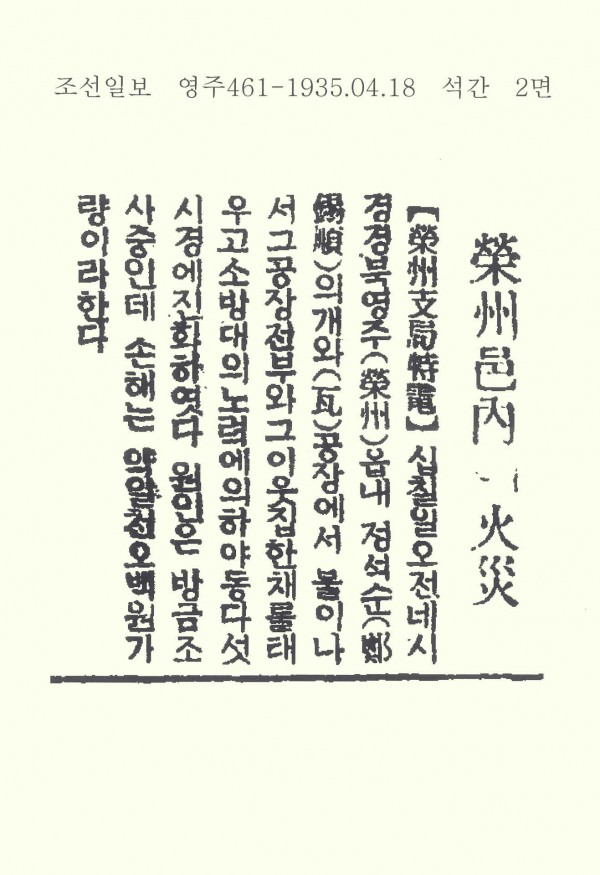 조선일보 영주461-1935.04.18 석간 2면
榮州邑內 火災
【榮州支局特電】십칠일오전네시
경경북영주(榮州)읍내 정석순(鄭
錫順)의개와(瓦)공장에서 불이나
서그공장전부와그이웃집한채를태
우고소방대의노력에의하야동다섯
시경에진화하엿다 원인은 방금조
사중인데 손해는 약일천오백원가
량이라한다